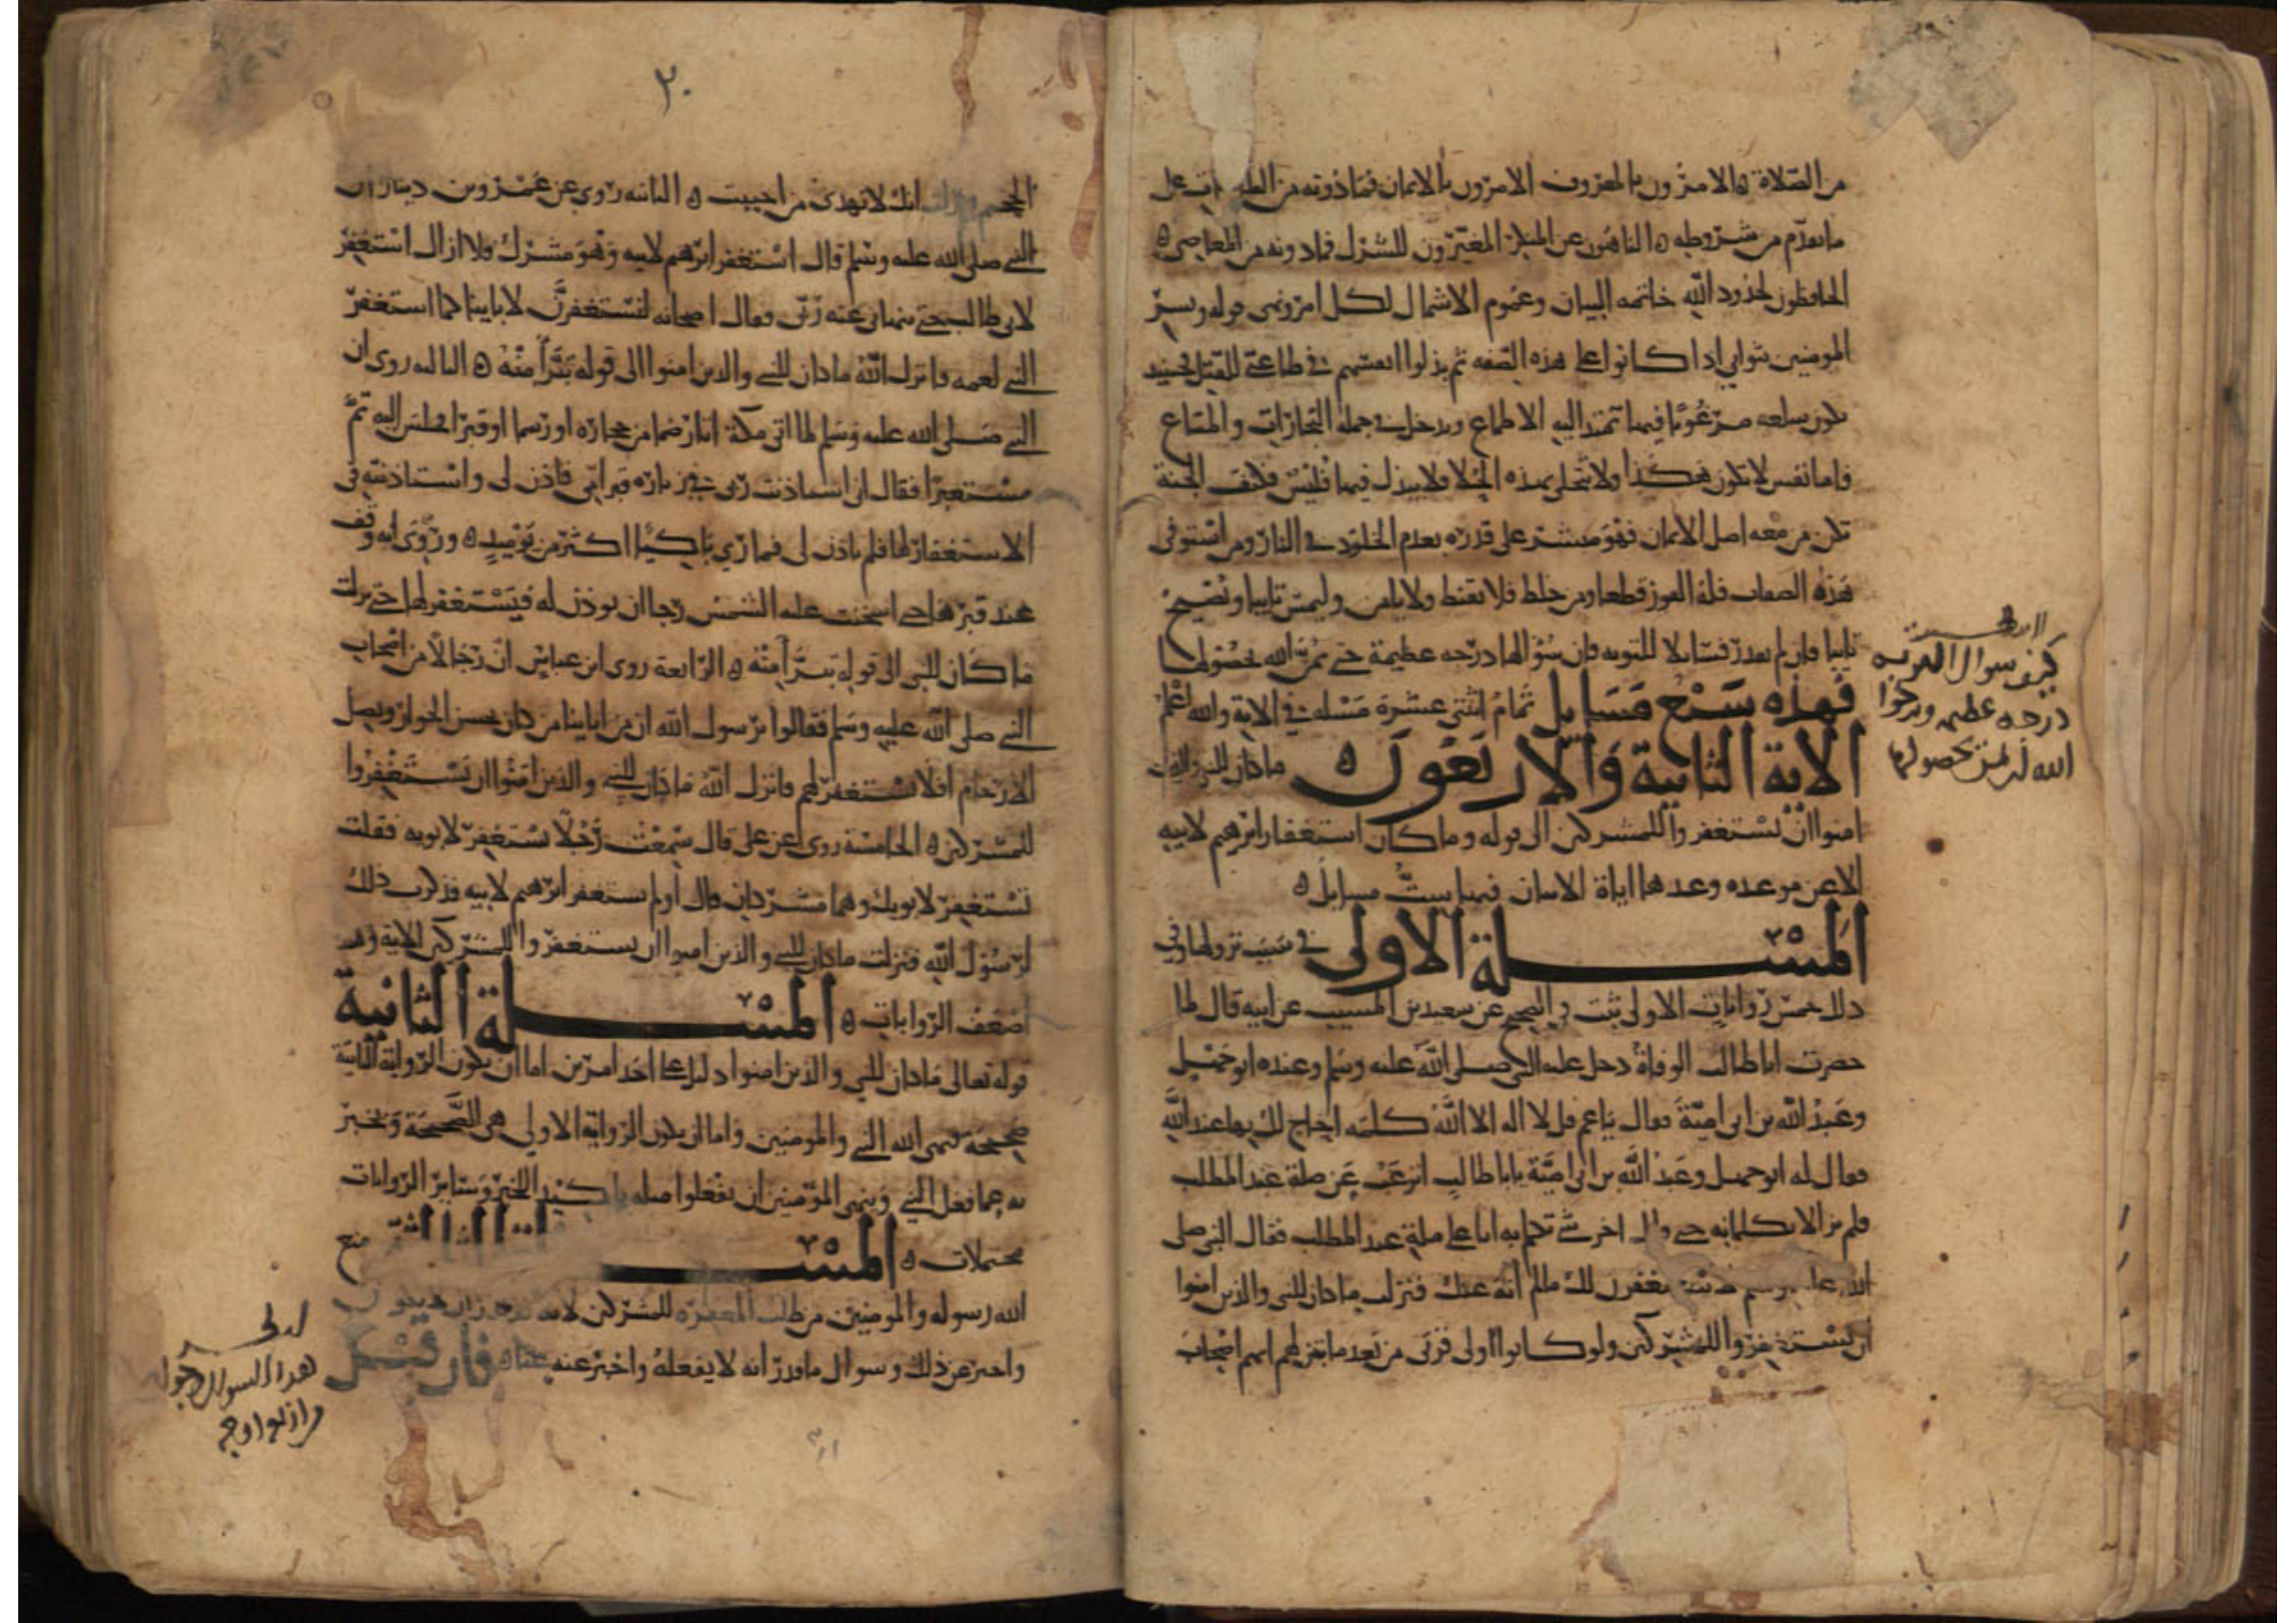 من الصلاة ه الامرون بالمعروف الامرون بالايمان فما دونه من على
ما تقدم من شروطه ه الناهون عن المنكر المغيرون للشرك فما دونه من المعاصي ه
الحافظون لحدود الله خاتمة البيان وعموم الاشمال لكل امر ونهي قوله وبشر
المومنين بثوابي اذا كانوا على هذه الصفه ثم بذلوا انفسهم في طاعتي للقتل فحينئذ
تكون سلعه مرغوبا فيها تمتد اليه الاطماع ويدخل في جملة التجارات والمتاع
فاما نفس لا تكون هكذا ولا تتحلى بهذه الحلا فلا يبذل فيها فلس فكيف الجنة
لكن من معه اصل الايمان فهو مبشر على قدره بعدم الخلود في النار ومن استوفى
هذه الصفات فله الفوز قطعا ومن خلط فلا يقنط ولا ياس وليمس تايبا ويصبح
تايبا فان لم يقدر فسايلا للتوبه فان سؤالها درجه عظيمة حتى يمن الله بحصولها
فهذه سبع مسايل تمام اثنتي عشرة مسله في الاية والله اعلم
الاية الثانية والاربعون ه ما كان للنبي والذين
امنوا ان يستغفروا للمشركين الى قوله وما كان استغفار ابرهيم لابيه
الا عن موعده وعدها اياه الايتان فيها ست مسايل ه
المسلة الاولى في سبب نزولها وفي
ذلك خمس روايات الاولى ثبت في الصحيح عن سعيد بن المسيب عن ابيه قال لما
حضرت ابا طالب الوفاة دخل عليه النبي صلى الله عليه وسلم وعنده ابو جهل
وعبد الله بن ابي امية فقال يا عم قل لا اله الا الله كلمه احاج لك بها عند الله
فقال له ابو جهل وعبد الله بن ابي امية يابا طالب اترغب عن ملة عبد المطلب
فلم يزالا يكلمانه حتى قال اخر شي تكلم به انا على ملة عبد المطلب فقال النبي صلى
الله عليه وسلم لاستغفرن لك ما لم انه عنك فنزلت ما كان للنبي والذين امنوا
ان يستغفروا للمشركين ولو كانوا اولى قربى من بعد ما تبين لهم انهم اصحاب
كيف سوال التوبه
درجه عظيمه ويرجوا
الله ان يمن بحصولها
٢٠
الجحيم ونزلت انك لا تهدي من احببت ه الثانيه روي عن عمرو بن دينار ان
النبي صلى الله عليه وسلم قال استغفر ابرهيم لابيه وهو مشرك فلا ازال استغفر
لابي طالب حتى ينهاني عنه ربي فقال اصحابه لنستغفرن لاباينا كما استغفر
النبي لعمه فانزل الله ما كان للنبي والذين امنوا الى قوله تبرأ منه ه الثالثه روي ان
النبي صلى الله عليه وسلم لما اتى مكة اتا رضما من حجاره او رسما او قبرا فجلس اليه ثم
مستعبرا فقال اني استاذنت ربي في زياره قبر امي فاذن لي واستاذنته في
الاستغفار لها فلم ياذن لي فما رئي باكيا اكثر من يوميذ ه وروي انه وقف
عند قبرها حتى سخنت عليه الشمس رجا ان يوذن له فيستغفر لها حتى نزلت
ما كان للنبي الى قوله تبرأ منه ه الرابعة روى ابن عباس ان رجالا من اصحاب
النبي صلى الله عليه وسلم فقالوا يرسول الله ان من اباينا من كان يحسن الجوار ويصل
الارحام افلا نستغفر لهم فانزل الله ما كان للنبي والذين امنوا ان يستغفروا
للمشركين ه الخامسة روي عن علي قال سمعت رجلا يستغفر لابويه فقلت
تستغفر لابويك وهما مشركان قال أولم يستغفر ابرهيم لابيه فذكرت ذلك
لرسول الله فنزلت ما كان للنبي والذين امنوا ان يستغفروا للمشركين الاية وهذه
اضعف الروايات ه المسلة الثانية
قوله تعالى ما كان للنبي والذين امنوا دليل على احد امرين اما ان يكون الرواية الثانية
صحيحة فنهى الله النبي والمومنين واما ان يكون الرواية الاولى هي الصحيحة ويخبر
به عما فعل النبي وينهى المومنين ان يفعلوا مثله تاكيد للخبر وساير الروايات
محتملات ه المسلة الثالثة منع
الله رسوله والمومنين من طلب المغفره للمشركين لانه
واخبر عن ذلك وسوال ما قدر انه لا يفعله واخبر عنه هناه فان قيل
هذا السوال وجوابه